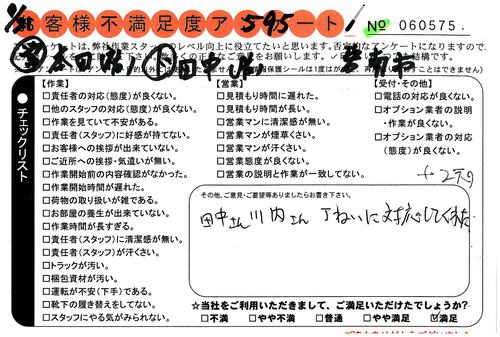 お客様不満足度アンケート! 595
No 060575.
ンケートは、弊社作業スタッフのレベル向上に役立てたいと思います。否定的なアンケートになりますので、
● チェックリスト
【作業】
□責任者の対応(態度)が良くない。
□他のスタッフの対応(態度)が良くない。
□作業を見ていて不安がある。
□責任者(スタッフ)に好感が持てない。
□お客様への挨拶が出来ていない。
□ご近所への挨拶・気遣いが無い。
□作業開始前の内容確認がなかった。
□作業開始時間が遅れた。
□荷物の取り扱いが雑である。
□お部屋の養生が出来ていない。
□作業時間が長すぎる。
□責任者(スタッフ)に清潔感が無い。
□責任者(スタッフ)が汗くさい。
□トラックが汚い。
□梱包資材が汚い。
□運転が不安(下手)である。
□靴下の履き替えをしてない。
□スタッフにやる気がみられない。
【営業】
□見積もり時間に遅れた。
□見積もり時間が長い。
□営業マンに清潔感が無い。
□営業マンが煙草くさい。
□営業マンが汗くさい。
□営業態度が良くない。
□営業の説明と作業が一致してない。
【受付・その他】
□電話の対応が良くない。
□オプション業者の説明
・作業が良くない。
□オプション業者の対応
(態度)が良くない。
その他、ご意見・ご要望等ありましたらお書き下さい。
田中さん 川内さん ていねいに対応してくれた
☆当社をご利用いただきまして、ご満足いただけたでしょうか?
□不満 □やや不満 □普通 □やや満足 ☑満足